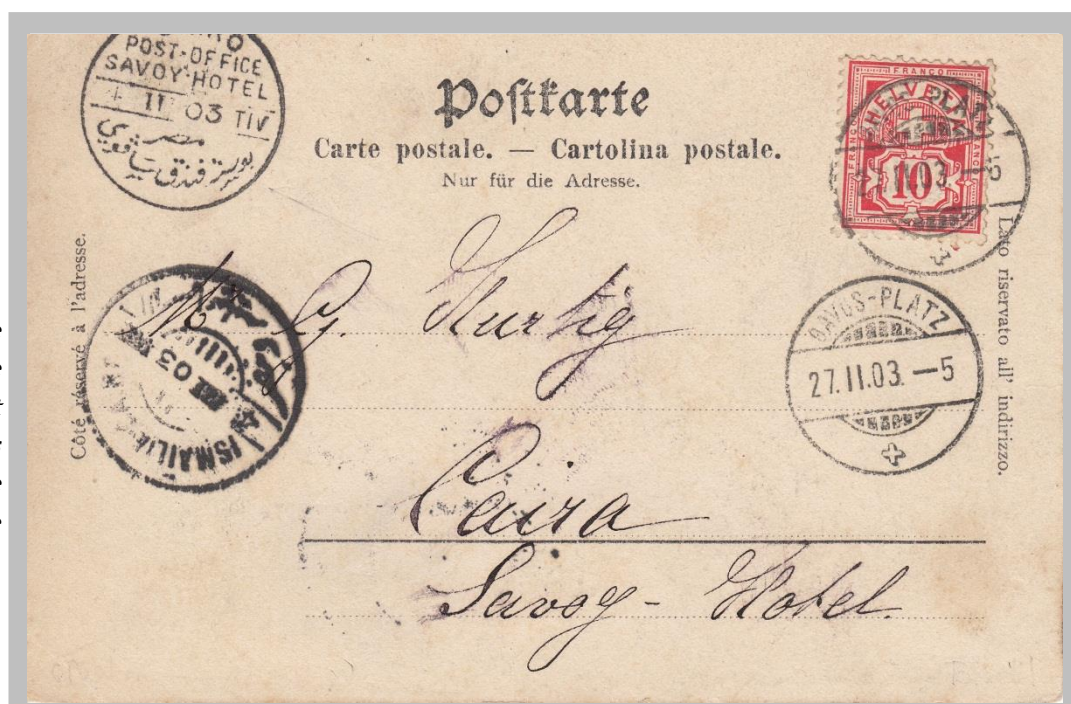 POST-OFFICE
SAVOY-HOTEL
II 03 TIV
مصر
بوستة فندق سافوي
Postkarte
Carte postale. — Cartolina postale.
Nur für die Adresse.
FRANCO
HELVETIA
10
Côté réservé à l'adresse.
Lato riservato all' indirizzo.
DAVOS-PLATZ
27.II.03.—5
ISMAILIA
03
Mr G. Hurtig
Cairo
Savoy - Hotel.